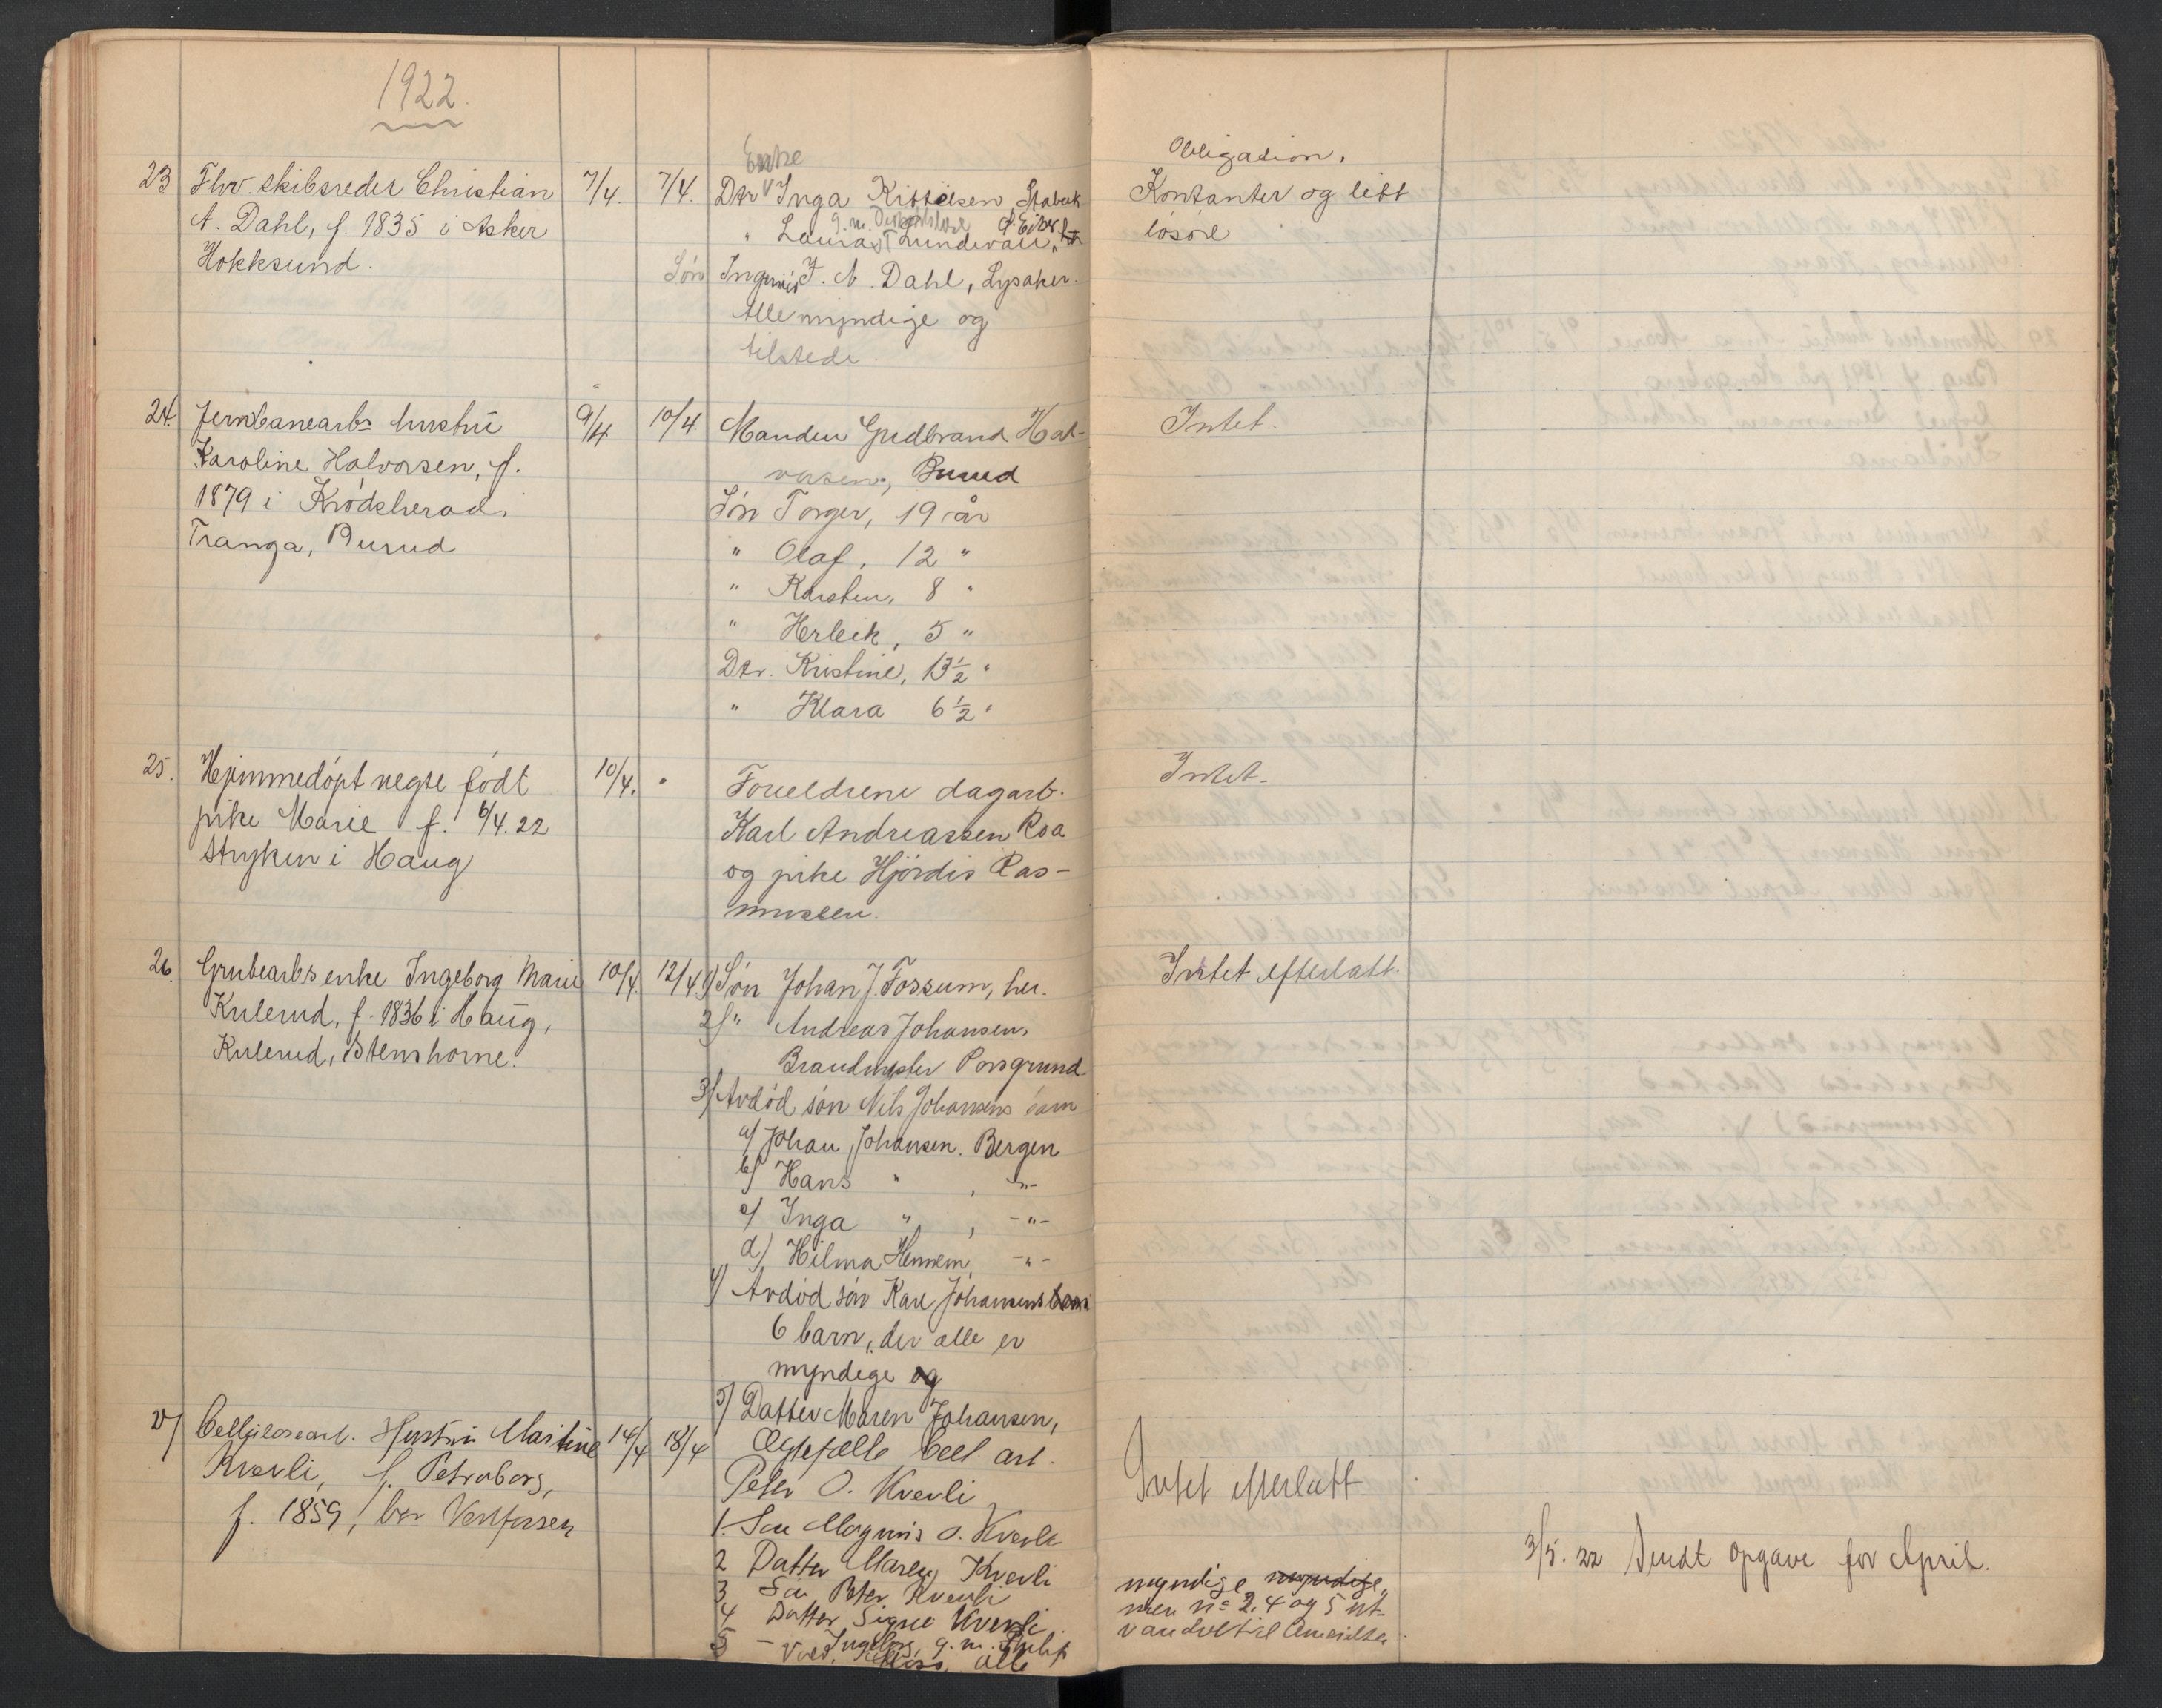 1922.
23 Fhv. skibsreder Christian 7/4. 7/4. Enke
A. Dahl, f. 1835 i Asker
Hokksund.
Dtr Inga Kittilsen, Stabæk
" Laura Lundevall,
Søn Ingeniør J. A. Dahl, Lysaker.
Alle myndige og
tilstede.
Obligation,
Kontanter og litt
løsøre
24. Jernbanearbs hustru 9/4 10/4
Karoline Halvorsen, f.
1879 i Krødsherad,
Tranga, Burud
Manden Gudbrand Hal-
vorsen, Burud
Søn Torger, 19 år
" Olaf, 12 "
" Karsten, 8 "
" Herleik, 5 "
Dtr. Kristine, 13½ "
" Klara 6½ "
Intet.
25. Hjemmedøpt uegte født 10/4. "
pike Marie f. 6/4.22
Stryken i Haug
Foreldrene dagarb.
Karl Andreassen Roa
og pike Hjørdis Ras-
mussen.
Intet.
26. Grubearbs enke Ingeborg Marie 10/4. 12/4
Kulerud, f. 1836 i Haug,
Kulerud, Stenshorne.
1) Søn Johan J. Fossum, her.
2) " Andreas Johansen,
Brandmester Porsgrund
3) Avdød søn Nils Johansens barn
a) Johan Johansen. Bergen
b) Hans " , -"-
c) Inga " , -"-
d) Hilma Hennem, -"-
4) Avdød søn Karl Johansens barn
6 barn, der alle er
myndige og
5) Datter Maren Johansen,
Intet efterlatt.
27) Cellulosearb. Hustru Martine 14/4 18/4
Kverli, f. Petraborg,
f. 1859, bor Vestfossen
Ægtefælle Cell. arb.
Peter O. Kverli
1. Søn Magnus O. Kverli
2 Datter Maren Kverli
3 Søn Peter Kverli
4 Datter Signe Kverli
5 - Ingeborg, g. m. Philip
Alle
Intet efterlatt
myndige myndige,
men no 2, 4 og 5 ut-
vandret til Amerika.
3/5. 22 Sendt opgave for April.